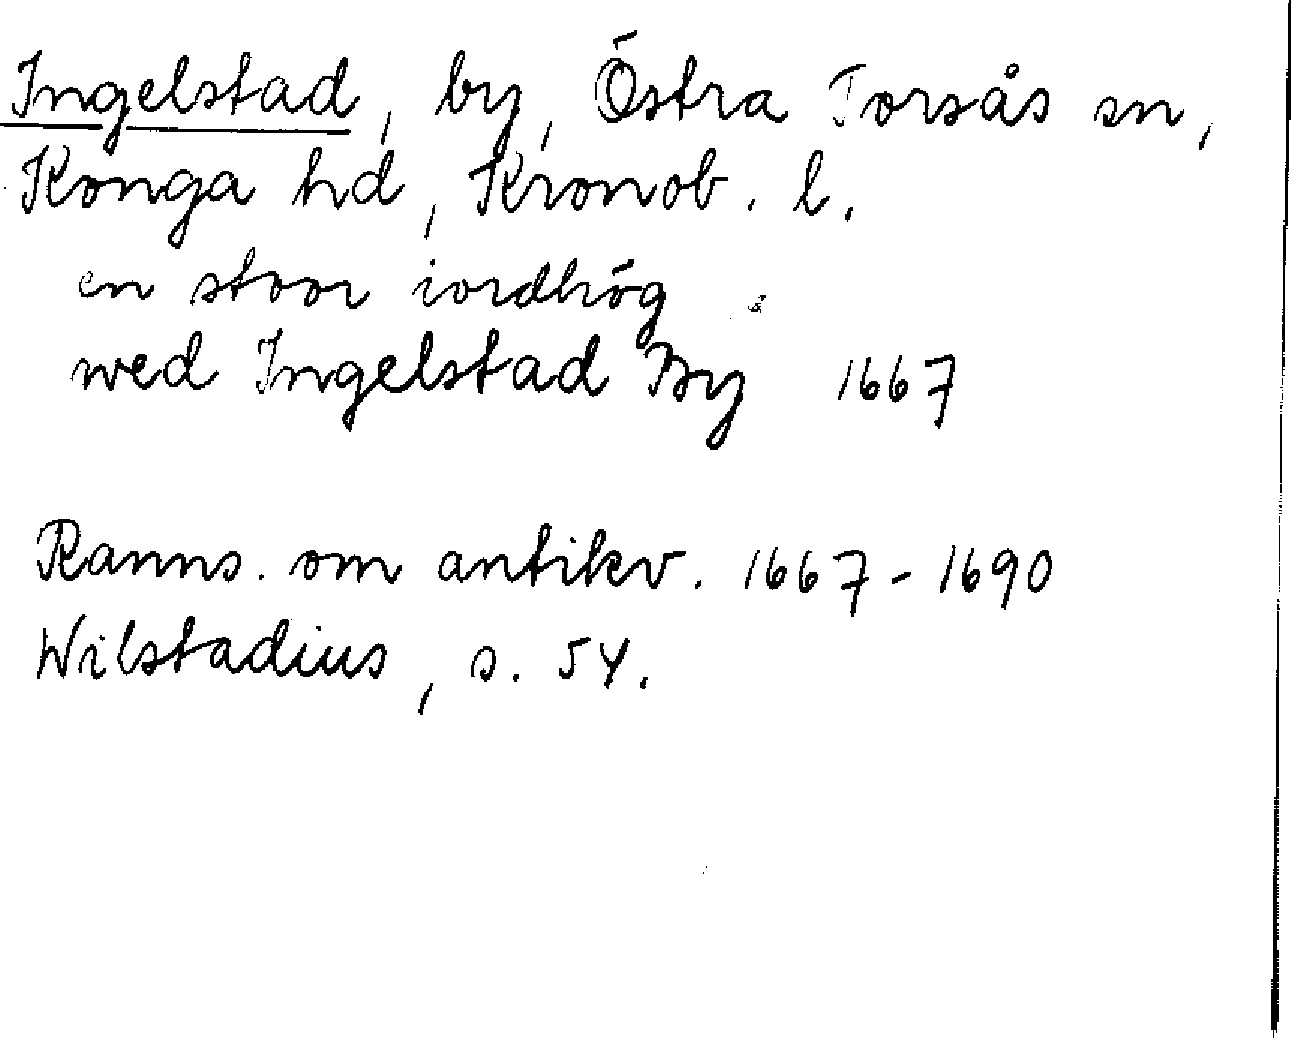 Ingelstad, by, Östra Torsås sn,
Konga hd, Kronob. l.
en stoor iordhög
wed Ingelstad By 1667
Ranns. om antikv. 1667-1690
Wilstadius, s. 54.